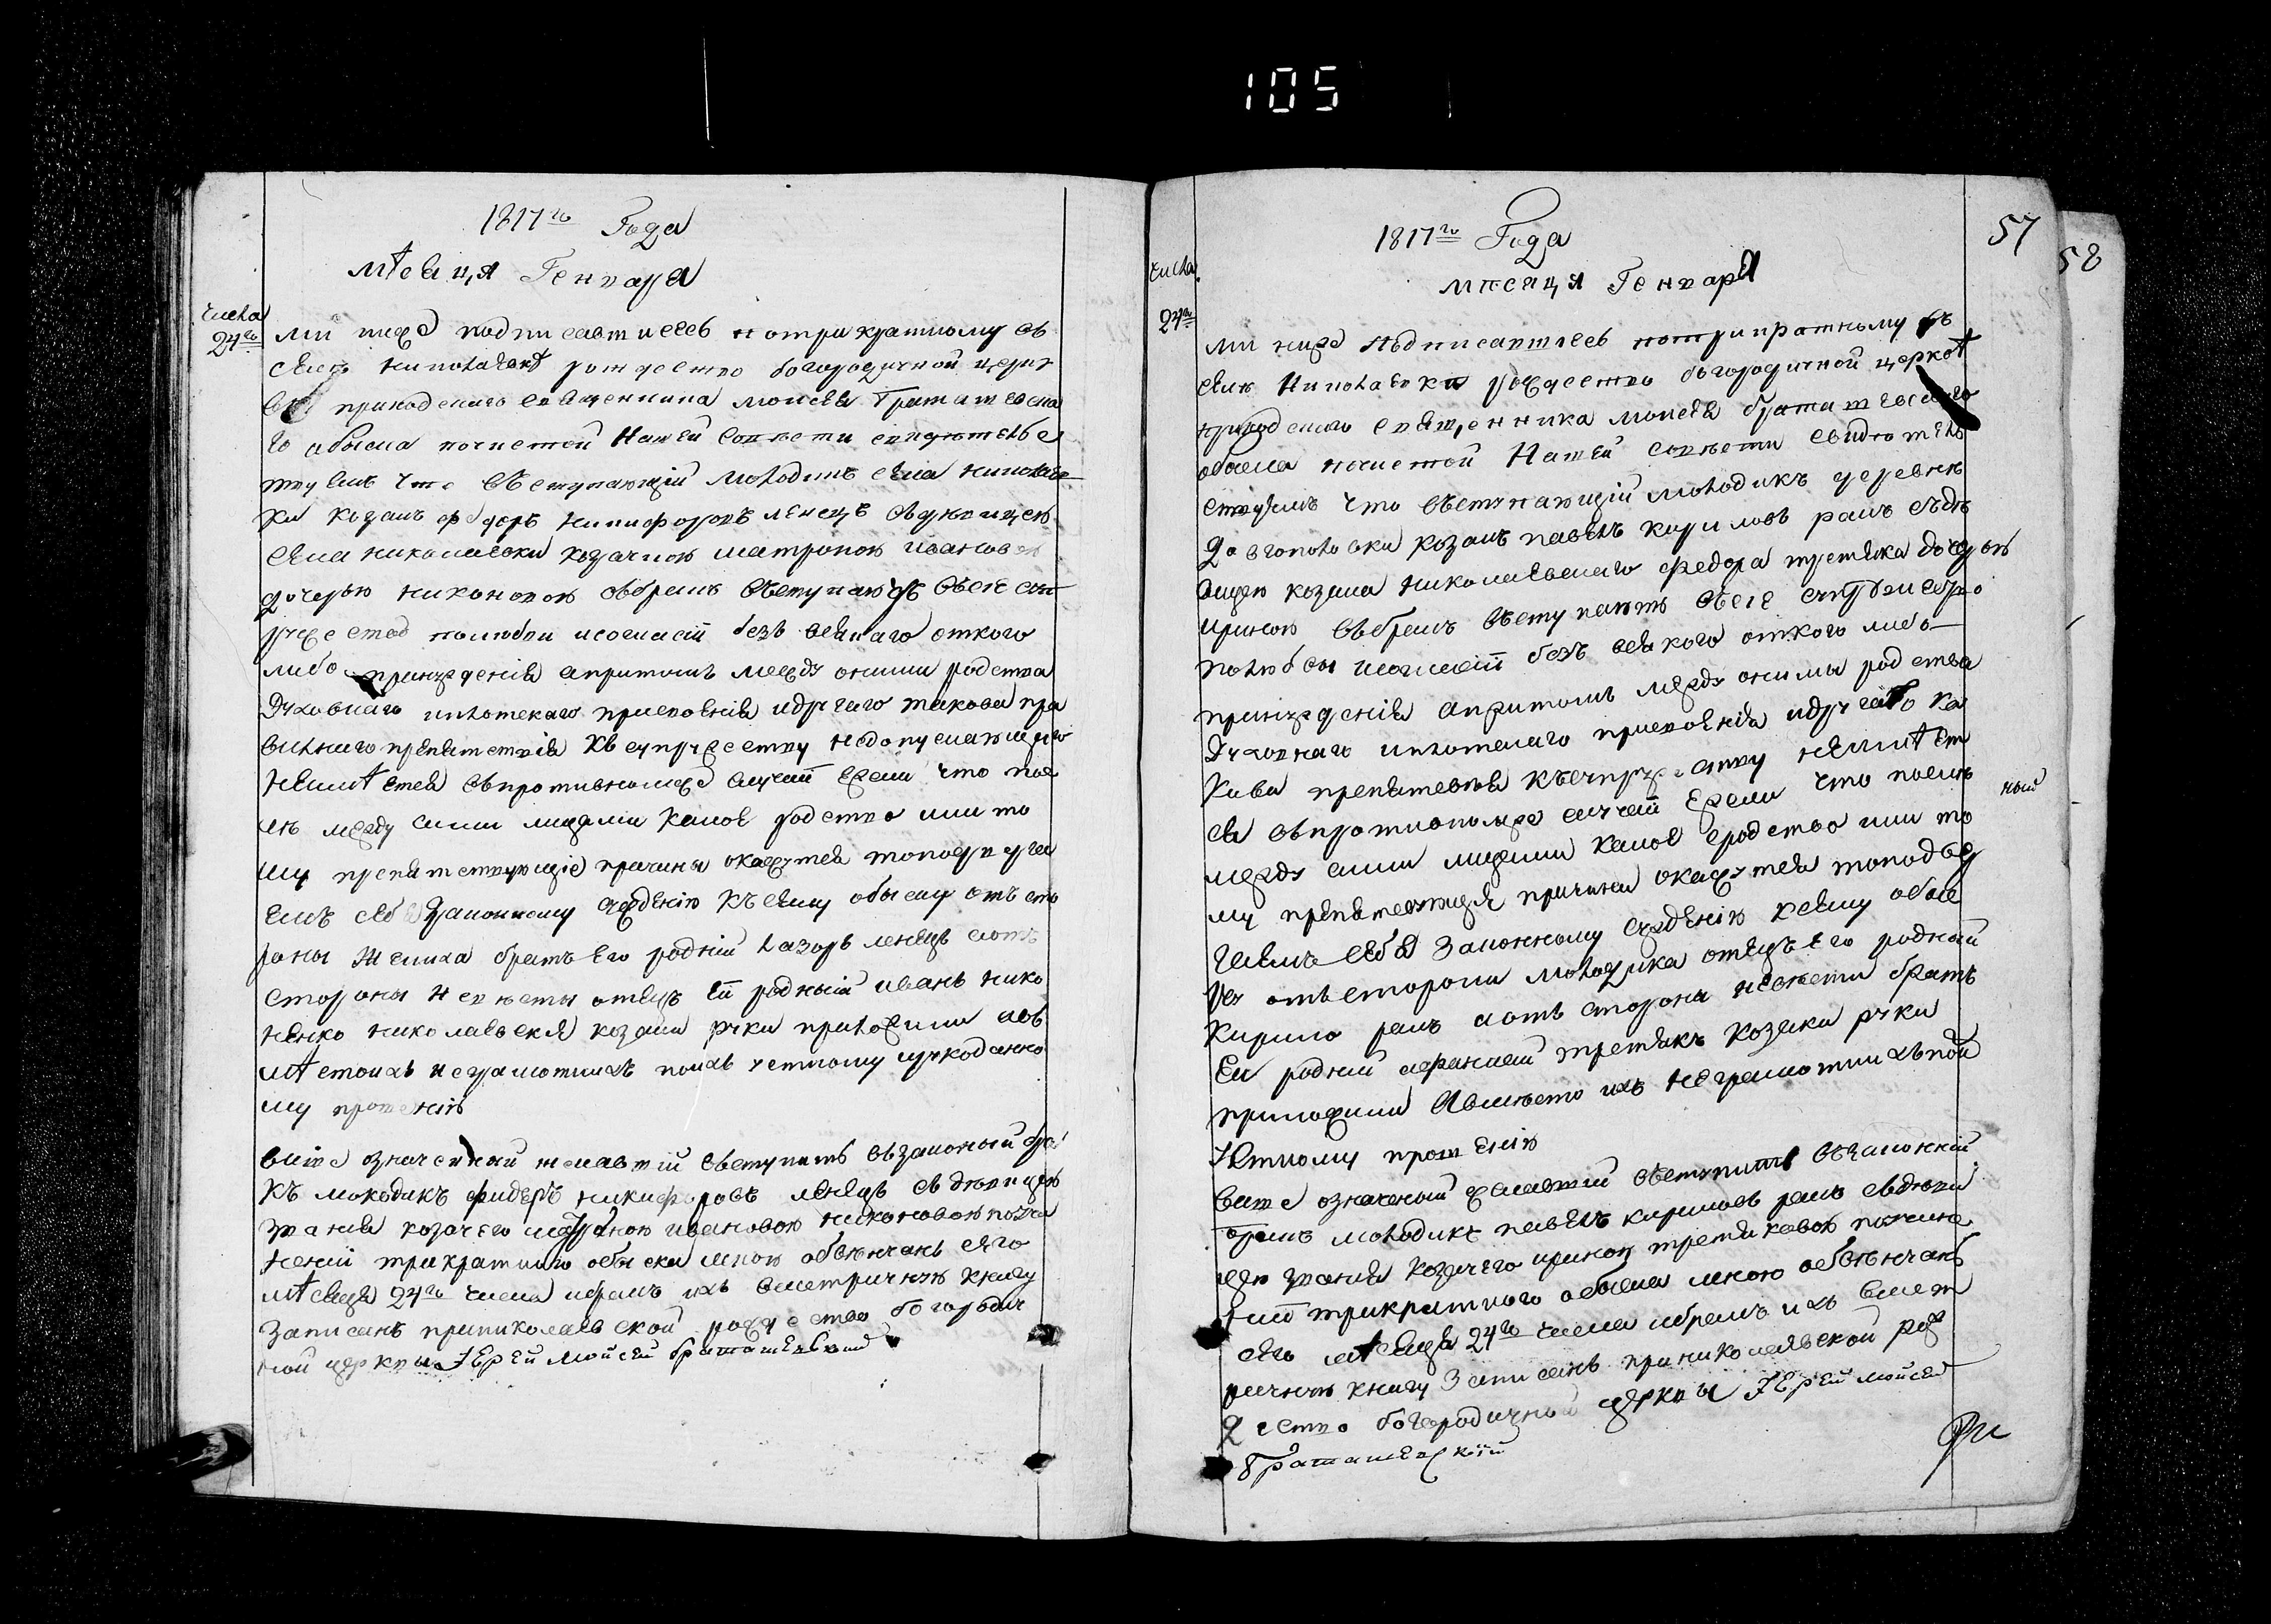 105
1817го Года
мѣсяця Генваря
числа
24го
ми ниже подписавшиесь потрикратному въ
селѣ николаевкѣ рождество богородичной церк
ви приходскаго священника моисея браташевска
го обыска почистой нашей совѣсти свидѣтельс
твуемъ что въступающій молодикъ села николаев
ки козакъ федоръ никифоровъ ленецъ съдѣвицею
села николаевки козачкою матроною ивановою
дочерью никоновою въбракъ въступаютъ въсіе суп
ружество полюбви исогласіи безъ всякаго откого
либо принужденія апритомъ между оними родства
духовнаго иплотскаго присвоенія идругаго такова пра
вилнаго препятствія къ супружеству недопускающаго
неимѣется въпротивномже случаи ежели что пос
лѣ между сими лицами какое родство или то
му препятствующіе причины окажутся топодверга
емъ себя законному суждению къ сему обыску отъ сто
роны жениха братъ его родній лазоръ ленецъ иотъ
стороны невѣсты отецъ ей родный иванъ нико
ненко николаевскія козаки руки приложили авъ
мѣстоихъ неграмотнихъ поихъ устному ирукоданно
му прошенію
више означенный желавшій въступить въ законный бра
къ молодикъ фидеръ никифоровъ ленецъ съ дѣвицею
званія козачего матроною ивановою никоновою поучи
неніи трикратнаго обыска мною обвѣнчанъ сего
мѣсяця 24го числа ибракъ ихъ вметричную книгу
записанъ приниколаевской рождество богородич
ной церквы Іерей мойсей браташевскій
57
58
1817го Года
мѣсяця Генваря
числа
24го
ми ниже подписавшіесь потрикратному въ
селѣ николаевки рождество богородичной церквѣ
приходскаго священника моисея браташевскаго
обыска почистой нашей совѣсти свидѣтель
ствуемъ что въступающій молодикъ деревнѣ
довгополовки козакъ павелъ кириловъ ракъ съдѣ
вицею козака николаевскаго федора третяка дочерью
ириною въбракъ въступаютъ въсіе супружество
полюбви исогласіи безъ всякого откого либо
принужденія апритомъ между оними родства
духовнаго иплотскаго присвоенія идругаго та
кова препятствія къ супружеству неимѣет
ся въпротивномже случаи ежели что послѣ
между сими лицами какое сродство или то
му препятствующія причини окажутся топодвер
гаемъ себя законному сужденію ксему обыс
ку отъстороны молодика отецъ его родный
кирило ракъ иотъ стороны невѣсти братъ
ей родній афанасій третякъ козаки руки
приложили авмѣсто ихъ неграмотнихъ поих
устному прошенію
више означеный желавшій въступить взаконній
бракъ молодикъ павелъ кириловъ ракъ съдѣви
цею званія козачего ириною третяковою поучине
ніи трикратного обыска мною обвѣнчанъ
сего мѣсяця 24го числа ибракъ ихъ вмет
ричную книгу записанъ приниколаевской рож
дество богородичной церквы Іерей мойсей
браташевскій